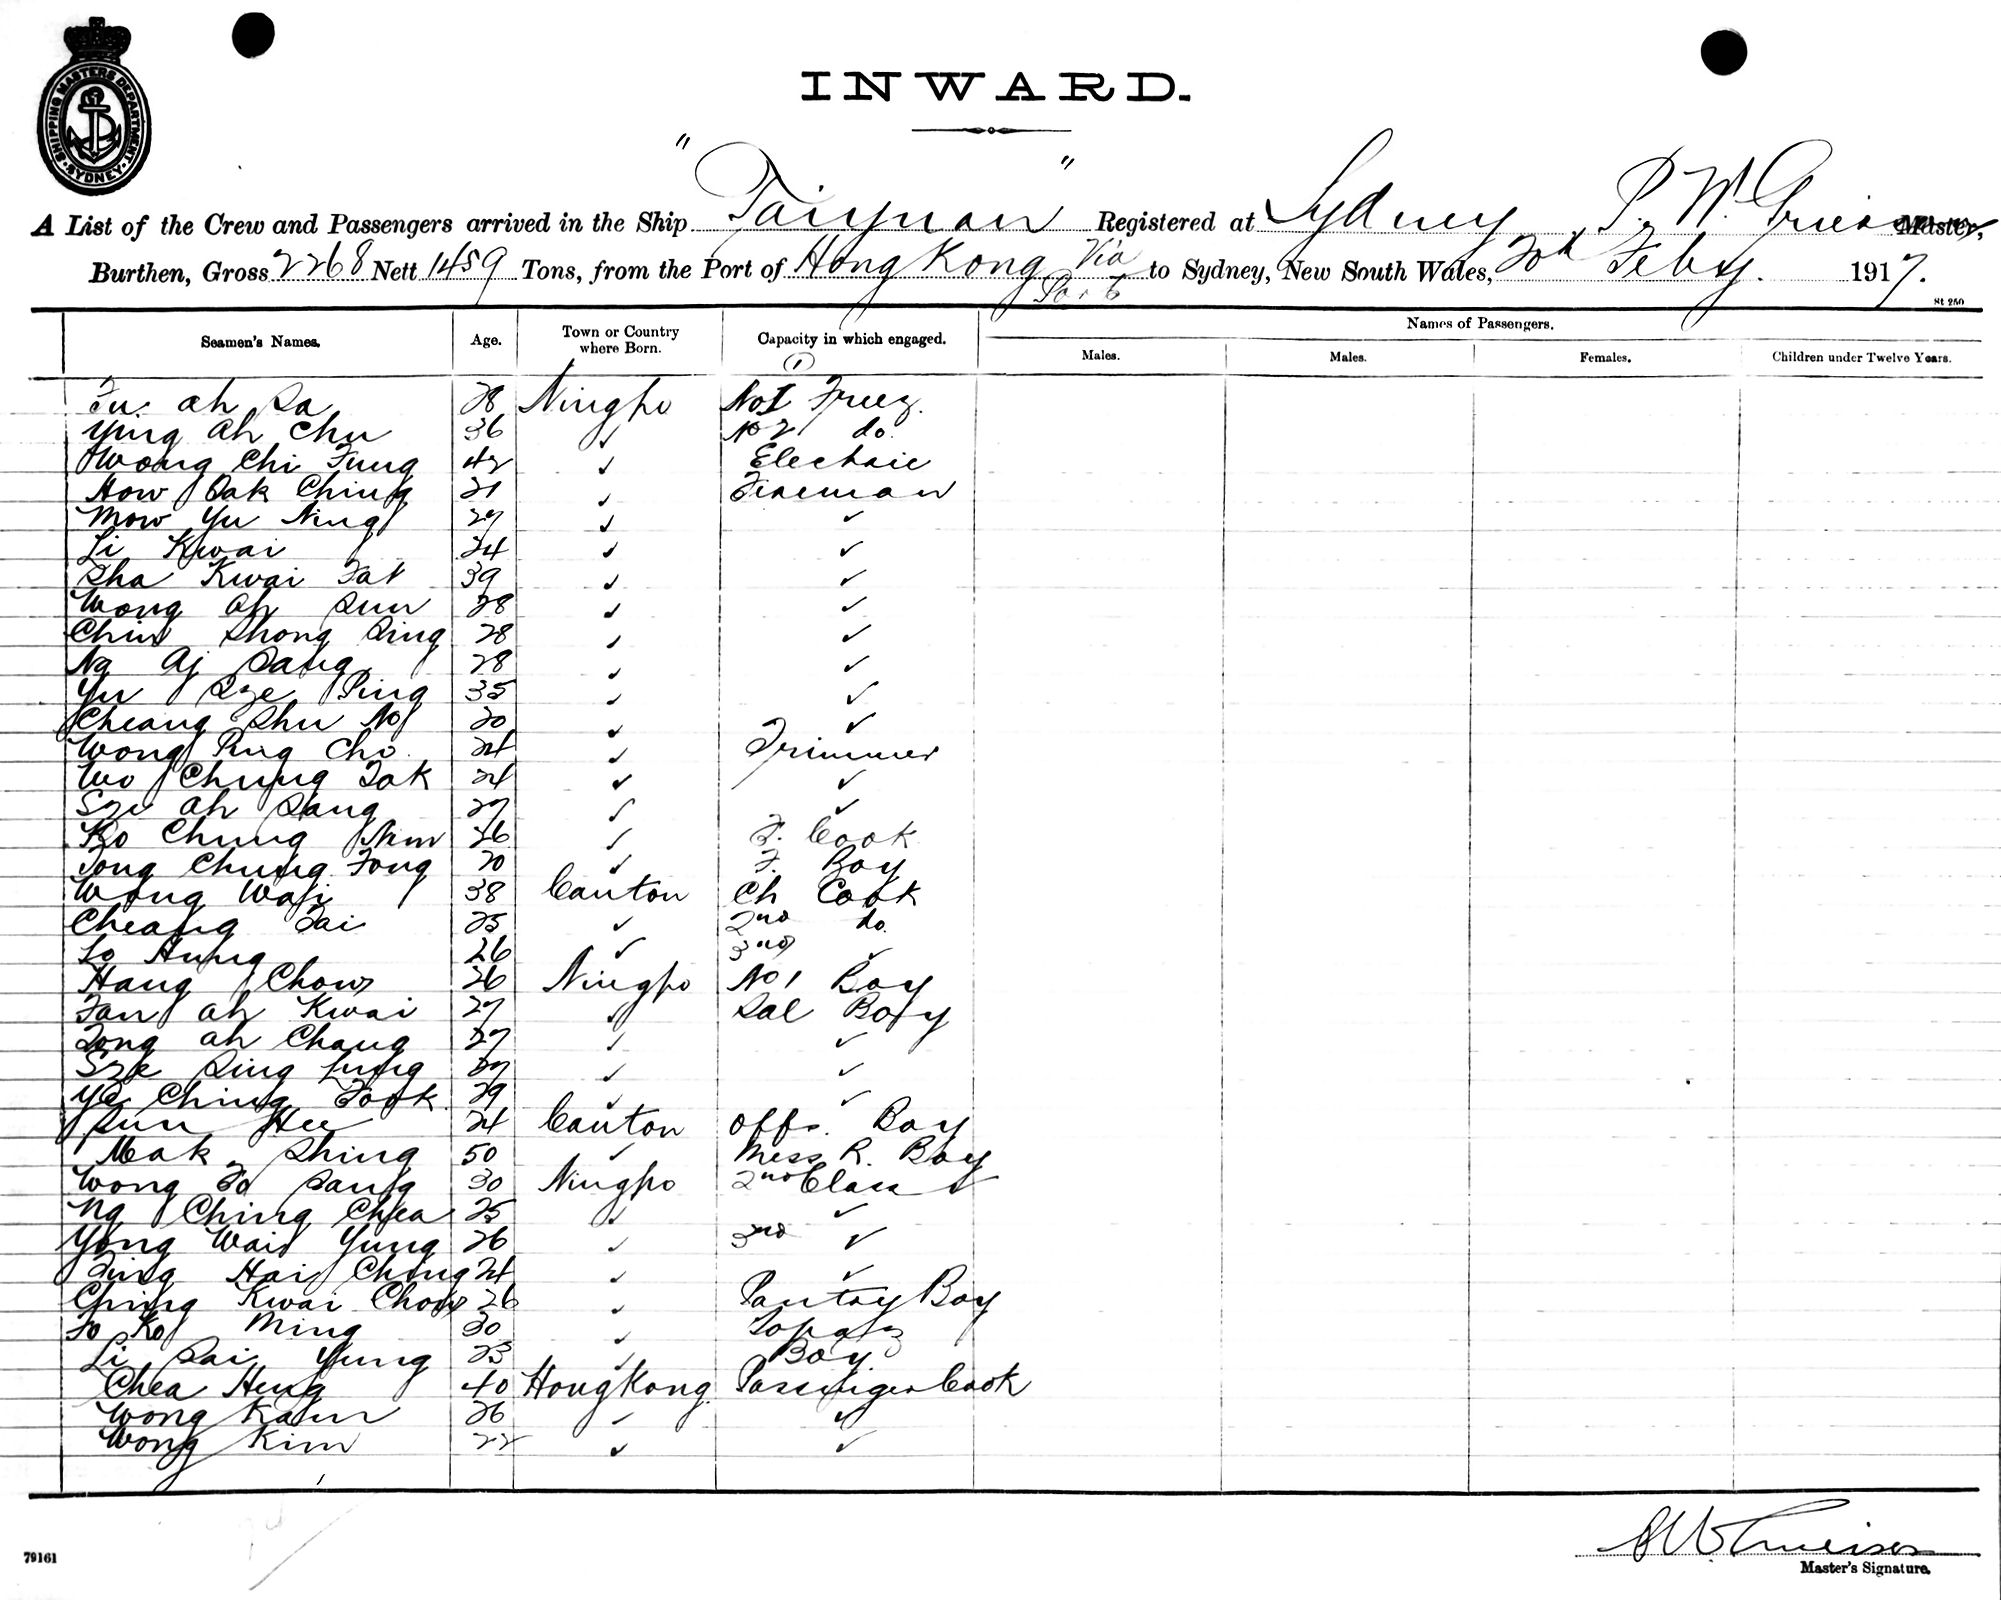 SHIPPING MASTERS DEPARTMENT · SYDNEY ·
INWARD.
A List of the Crew and Passengers arrived in the Ship "Taiyuan" Registered at Sydney P. W. Grierson Master,
Burthen, Gross 2268 Nett 1459 Tons, from the Port of Hong Kong Via Ports to Sydney, New South Wales, 20th Feby. 1917.
St 250
Seamen's Names. Age. Town or Country where Born. Capacity in which engaged. Names of Passengers.
Males. Males. Females. Children under Twelve Years.
Fu ah Sa 28 Ningpo No 1
Ying ah Chu 36 ✓ No 2 do.
Wong Chi Fung 42 ✓ Electric
How Sak Ching 21 ✓ Fireman
Mow Yu Ning 27 ✓ ✓
Li Kwai 24 ✓ ✓
Sha Kwai Fat 39 ✓ ✓
Wong ah Sun 28 ✓ ✓
Chin Shong Sing 28 ✓ ✓
Ng Aj Sang 28 ✓ ✓
Yu Sze Ping 35 ✓ ✓
Cheang Shu No 20 ✓ ✓
Wong Ping Cho 24 ✓ Trimmer
Wo Chung Tak 24 ✓ ✓
Sze ah Sang 27 ✓ ✓
Ko Chung Nin 26 ✓ F. Cook
Tong Chung Fong 20 ✓ F. Boy
Wong Wai 38 Canton Ch Cook
Cheang Tai 25 ✓ 2nd do.
Lo Hung 26 ✓ 3rd ✓
Hang Chow 26 Ningpo No 1 Boy
Fan ah Kwai 27 ✓ Sal Boy
Tong ah Chang 27 ✓ ✓
Sze Sing Lung 27 ✓ ✓
Ye Ching Fook 29 ✓ ✓
Sun Hee 24 Canton Offs. Boy
Mak Shing 50 ✓ Mess R. Boy
Wong To Sang 30 Ningpo 2nd Class ✓
Ng Ching Chea 25 ✓ ✓
Yong Wai Yung 26 ✓ 3rd ✓
Ting Hai Ching 24 ✓ ✓
Ching Kwai Chow 26 ✓ Pantry Boy
To Ko Ming 30 ✓ Topaz
Li Sai Yung 23 ✓ Boy.
Chea Heng 40 Hong Kong Passenger Cook
Wong Kam 26 ✓ ✓
Wong Kim 22 ✓ ✓
79161
P W Grierson
Master's Signature.